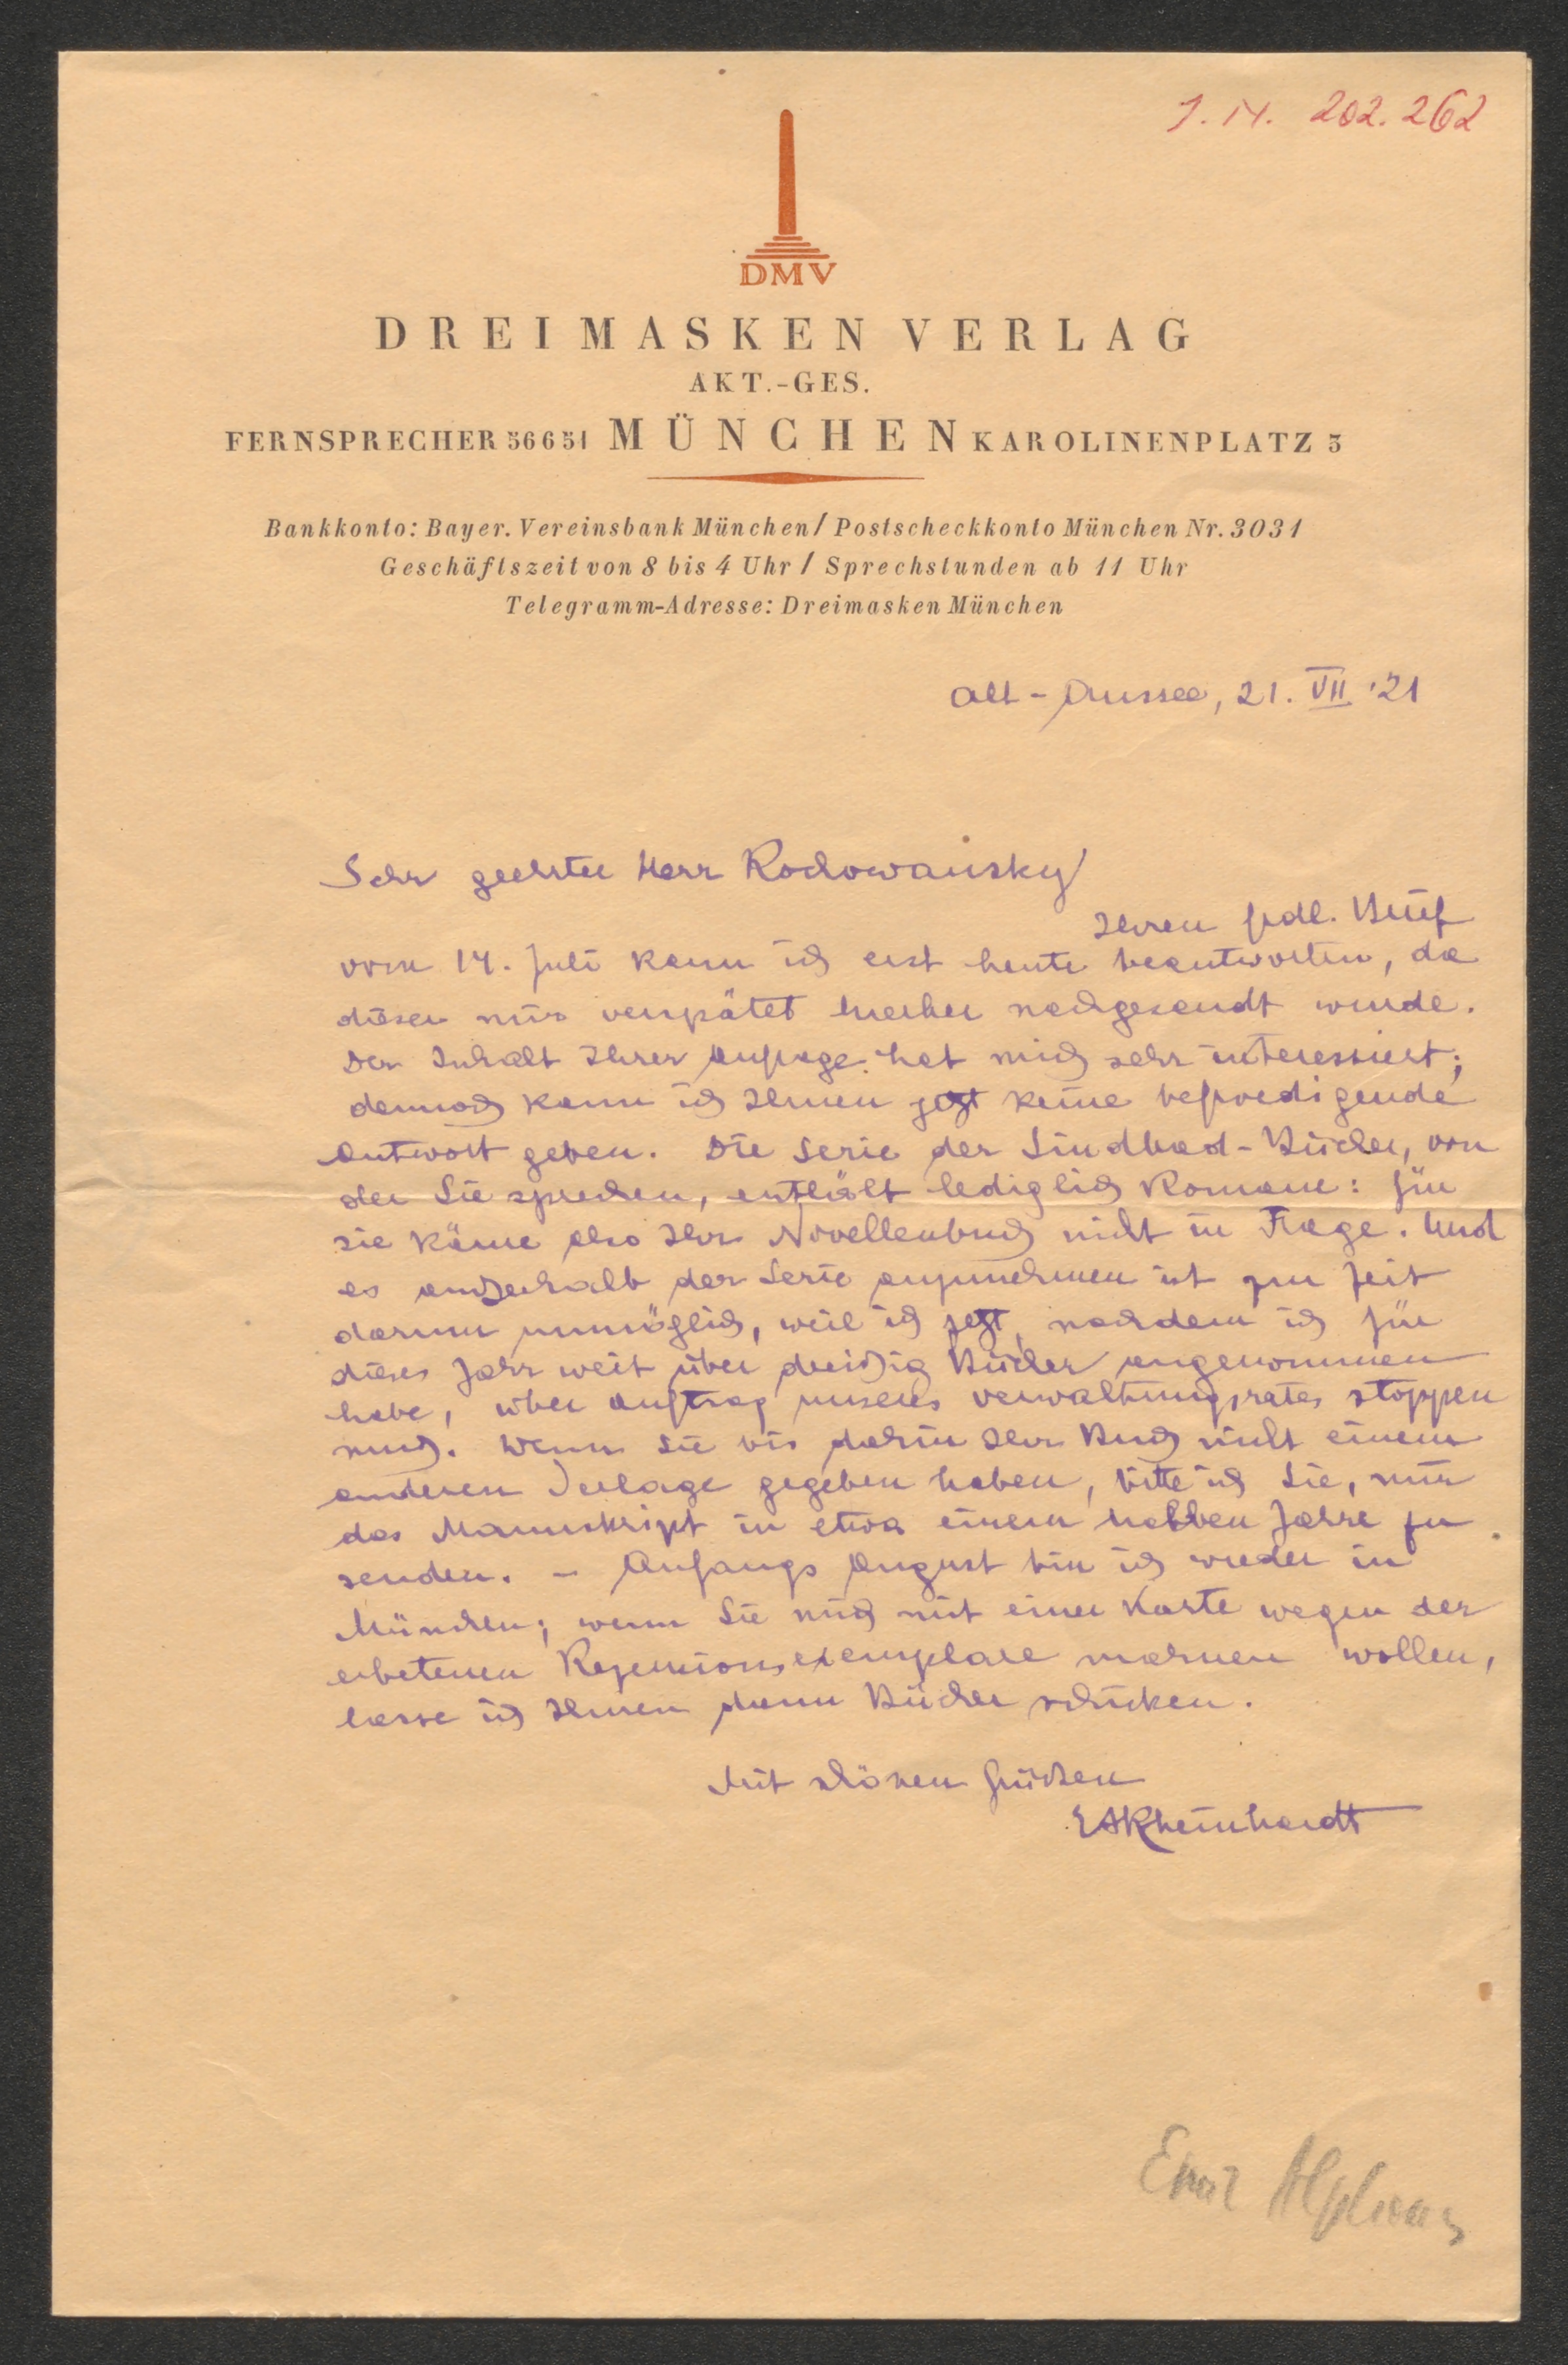 J. N. 202.262
DMV
DREIMASKEN VERLAG
AKT.-GES.
FERNSPRECHER 56651 MÜNCHEN KAROLINENPLATZ 3
Bankkonto: Bayer. Vereinsbank München / Postscheckkonto München Nr. 3031
Geschäftszeit von 8 bis 4 Uhr / Sprechstunden ab 11 Uhr
Telegramm-Adresse: Dreimasken München
Alt-Aussee, 21. VII '21
Sehr geehrter Herr Rochowansky
Ihren frdl. Brief
vom 14. Juli kann ich erst heute beantworten, da
dieser mir verspätet hierher nachgesandt wurde.
Der Inhalt Ihrer Anfrage hat mich sehr interessiert;
dennoch kann ich Ihnen jetzt keine befriedigende
Antwort geben. Die Serie der Sindbad-Bücher, von
der Sie sprechen, enthält lediglich Romane: für
sie käme also Ihr Novellenbuch nicht in Frage. Und
es außerhalb der Serie anzunehmen ist zur Zeit
darum unmöglich, weil ich jetzt, nachdem ich für
dieses Jahr weit über dreißig Bücher angenommen
habe, über Auftrag unseres Verwaltungsrates stoppen
muß. Wenn Sie bis dahin Ihr Buch nicht einem
anderen Verlage gegeben haben, bitte ich Sie, mir
das Manuskript in etwa einem halben Jahre zu
senden. – Anfangs August bin ich wieder in
München; wenn Sie mich mit einer Karte wegen der
erbetenen Rezensionsexemplare mahnen wollen,
lasse ich Ihnen dann Bücher schicken.
Mit schönen Grüßen
EARheinhardt
Emil Alphons